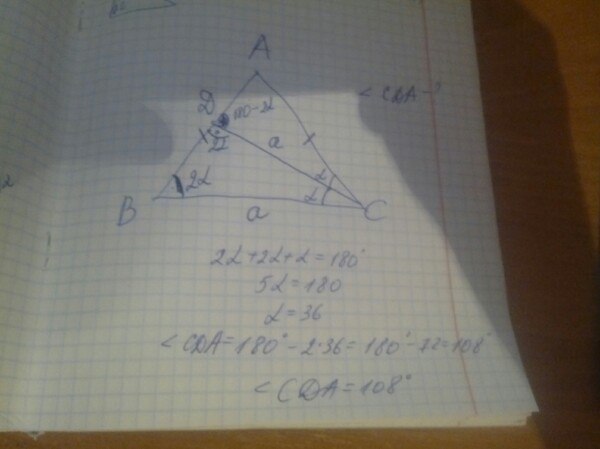 A
< CDA - ?
D
180-2α
a
2α
2α
α
α
B
a
C
2α+2α+α=180°
5α=180
α=36
< CDA=180°-2·36=180°-72=108°
< CDA=108°